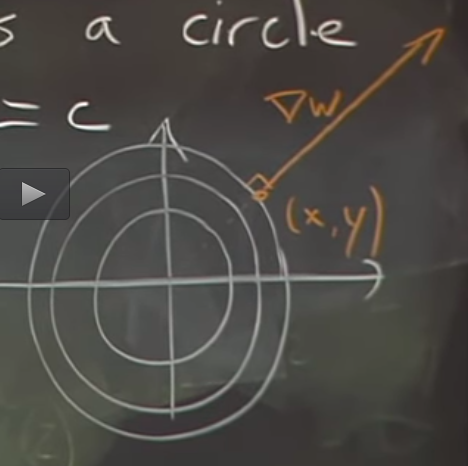 s a circle
= c
∇w
(x,y)